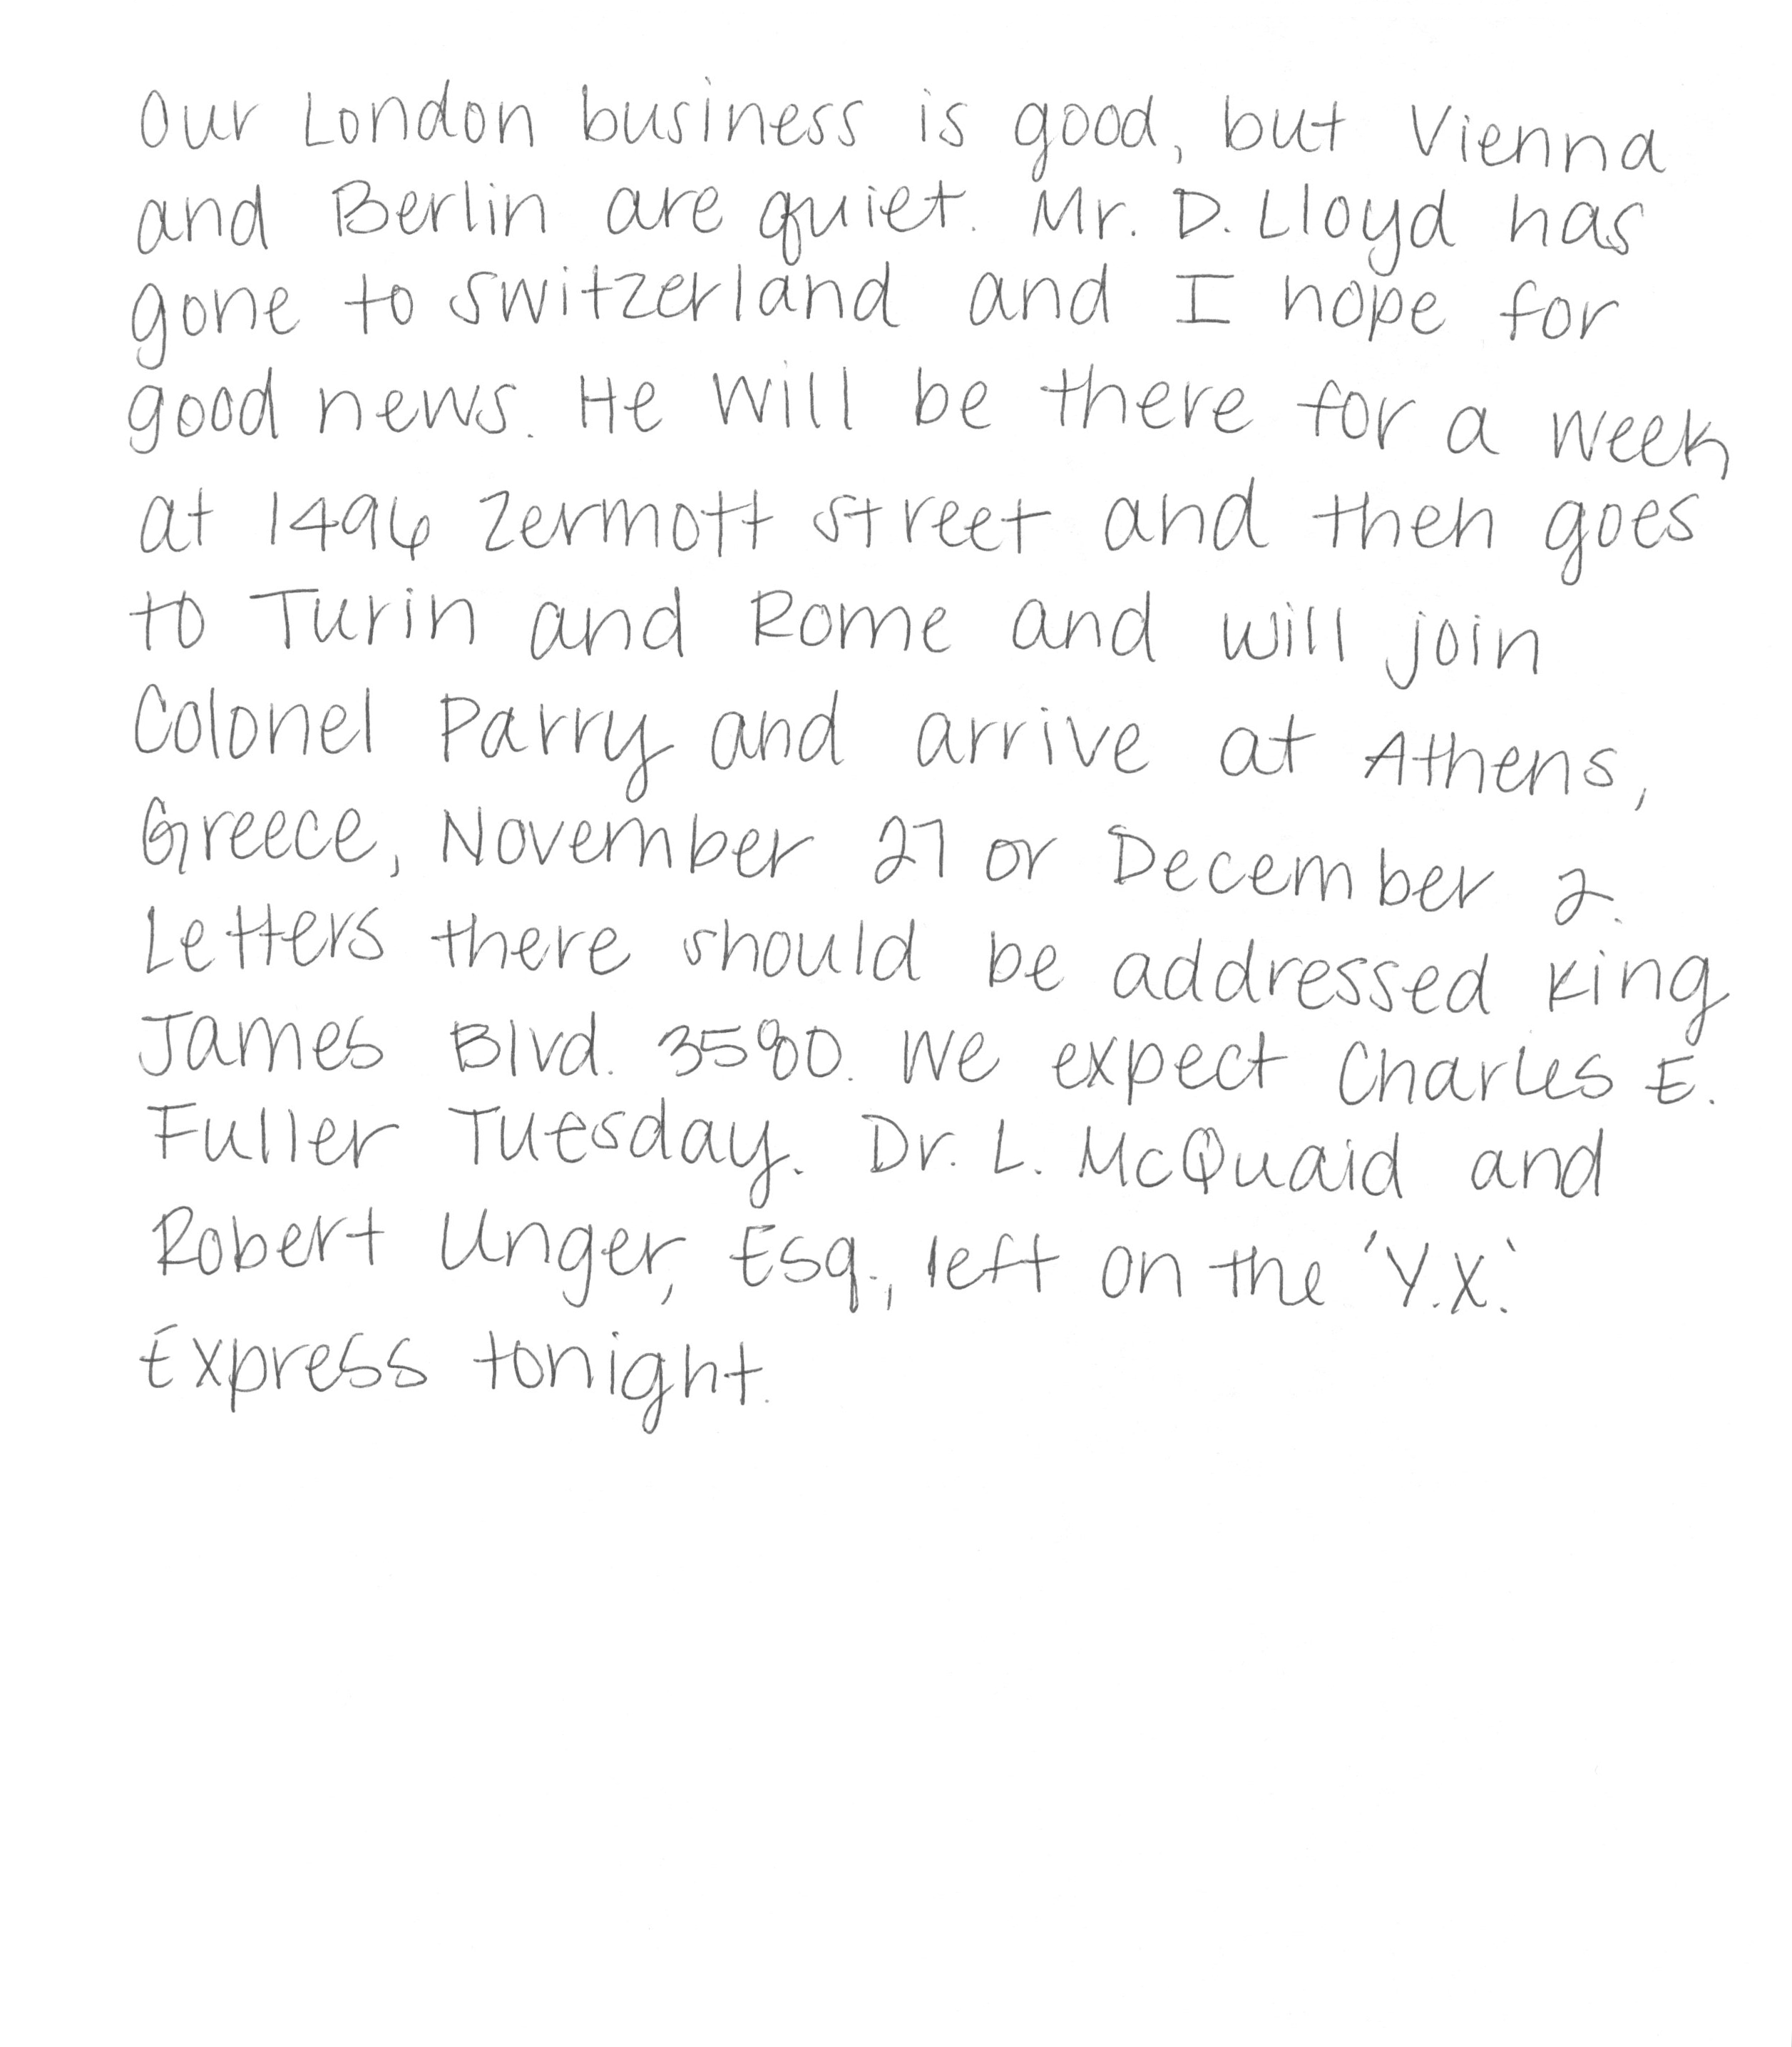 Our London business is good, but Vienna
and Berlin are quiet. Mr. D. Lloyd has
gone to Switzerland and I hope for
good news. He will be there for a week
at 1496 Zermott Street and then goes
to Turin and Rome and will join
Colonel Parry and arrive at Athens,
Greece, November 27 or December 2.
Letters there should be addressed King
James Blvd. 3580. We expect Charles E.
Fuller Tuesday. Dr. L. McQuaid and
Robert Unger, Esq., left on the 'Y.X.'
Express tonight.